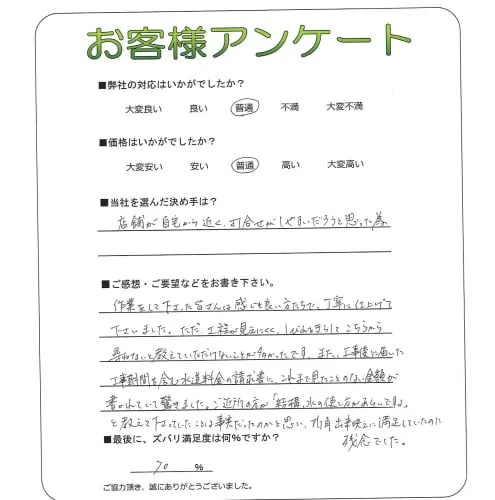 お客様アンケート
■弊社の対応はいかがでしたか?
大変良い 良い 普通 不満 大変不満
■価格はいかがでしたか?
大変安い 安い 普通 高い 大変高い
■当社を選んだ決め手は?
店舗が自宅から近く、打合せがしやすいだろうと思った為
■ご感想・ご要望などをお書き下さい。
作業をして下さった皆さんは感じも良い方たちで、丁寧に仕上げて
下さいました。ただ、工程が見えにくく、しびれをきらしてこちらから
尋ねないと教えていただけないことが多かったです。また、工事後に届いた
工事期間を含む水道料金の請求書に、これまで見たことのない金額が
書かれていて驚きました。ご近所の方が「結構、水の使い方があらいですよ」
と教えて下さっていたことは事実だったのかと思い、出来映えに満足していたのに
残念でした。
■最後に、ズバリ満足度は何%ですか?
70 %
ご協力頂き、誠にありがとうございました。